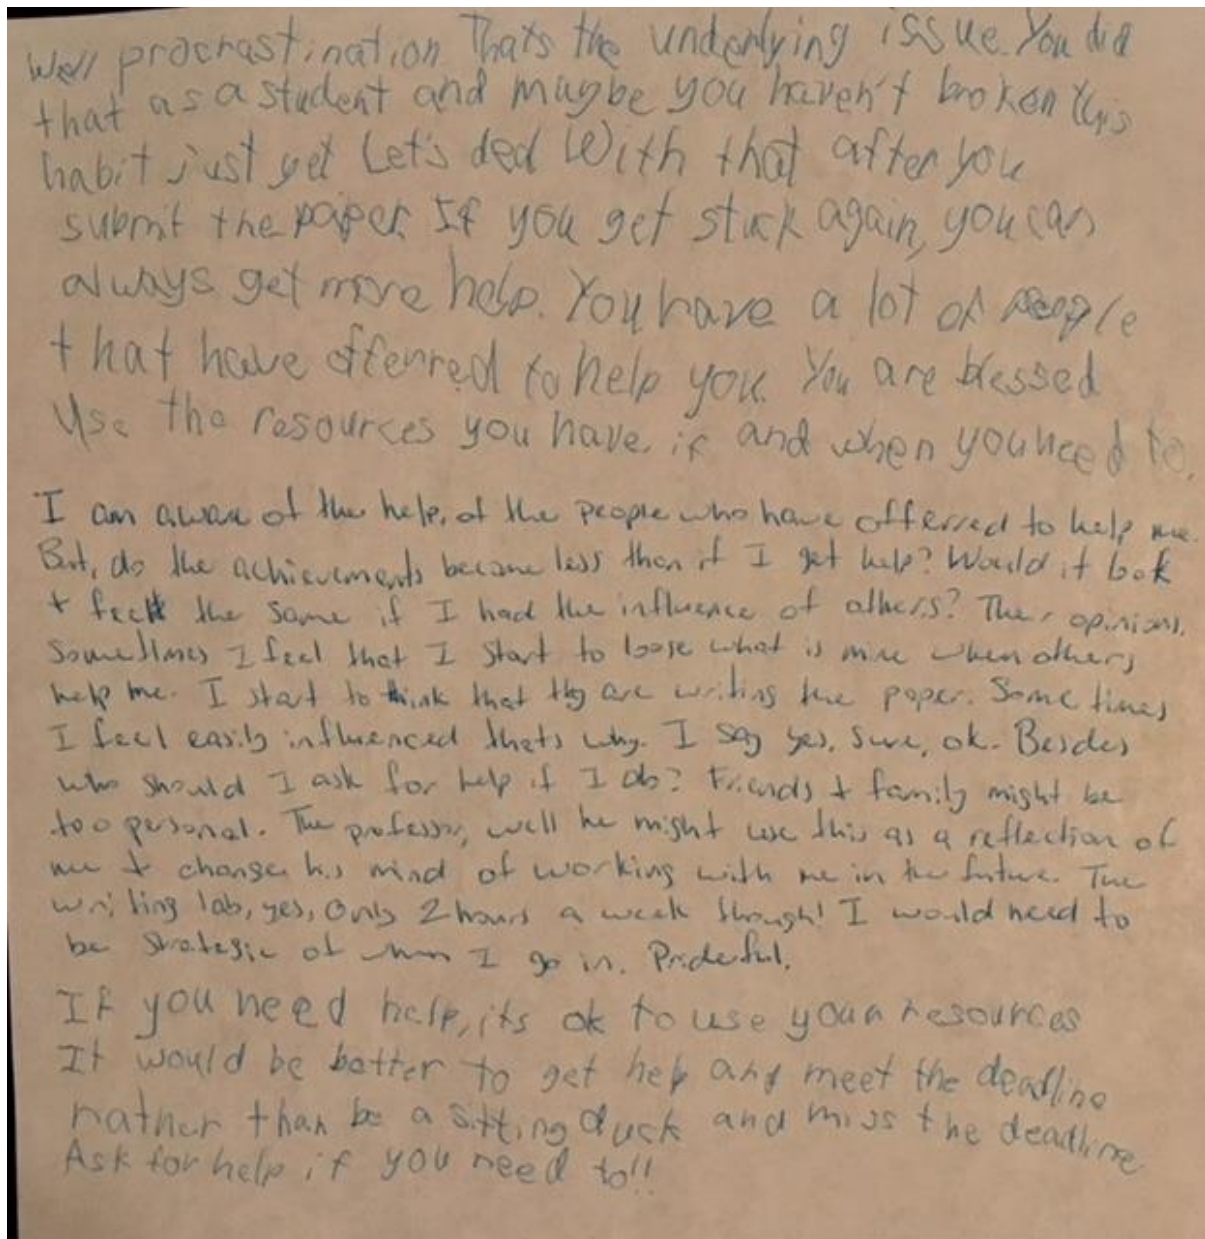 Well procrastination Thats the underlying issue. You did
that as a student and maybe you haven't broken this
habit just yet Let's deal With that after you
submit the paper. If you get stuck again, you can
always get more help. You have a lot of people
that have offerred to help you. You are blessed
Use the resources you have. if and when you need to.
I am aware of the help, of the people who have offerred to help me.
But, do the achievements become less then if I get help? Would it look
+ feel the same if I had the influence of others? Their opinions.
Sometimes I feel that I start to loose what is mine when others
help me. I start to think that they are writing the paper. Some times
I feel easily influenced thats why. I say yes, sure, ok. Besides
who should I ask for help if I do? Friends + family might be
too personal. The professor, well he might use this as a reflection of
me + change his mind of working with me in the future. The
writing lab, yes, only 2 hours a week though! I would need to
be strategic of when I go in. Prideful.
If you need help, its ok to use your resources
It would be better to get help and meet the deadline
rather than be a sitting duck and miss the deadline
Ask for help if you need to!!